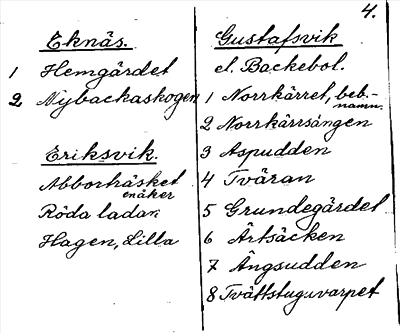 4.
Eknäs.
1 Hemgärdet
2 Nybackaskogen
Eriksvik.
Abborhäsket
enåker
Röda ladan
Hagen, Lilla
Gustafsvik
el. Backebol.
1 Norrkärret, beb.-
namn.
2 Norrkärrsängen
3 Aspudden
4 Tväran
5 Grundegärdet
6 Ärtsäcken
7 Ängsudden
8 Tvättstuguvarpet